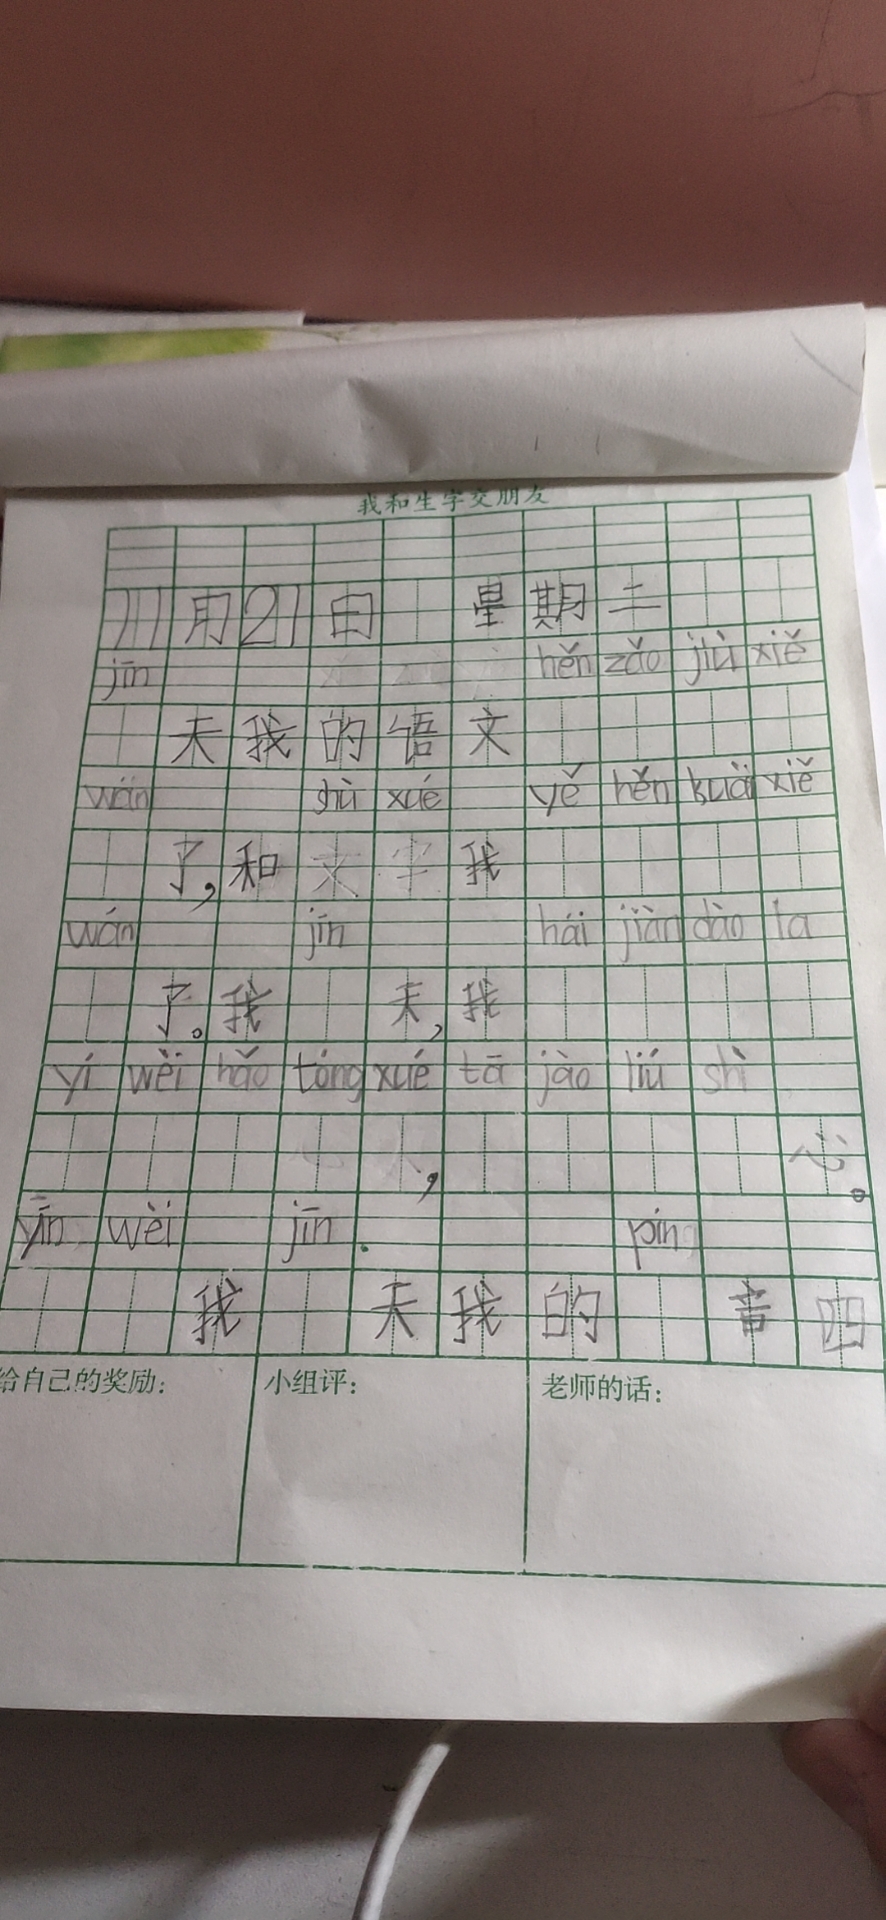 我和生字交朋友
11月21日 星期二
jīn hěn zǎo jiù xiě
天我的语文
wán shù xué yě hěn kuài xiě
了,和 我
wán jīn hái jiàn dào la
了。我 天,我
yí wèi hǎo tóng xué tā jào liú shì
, 心。
yīn wèi jīn píng
我 天我的 言四
给自己的奖励: 小组评: 老师的话: